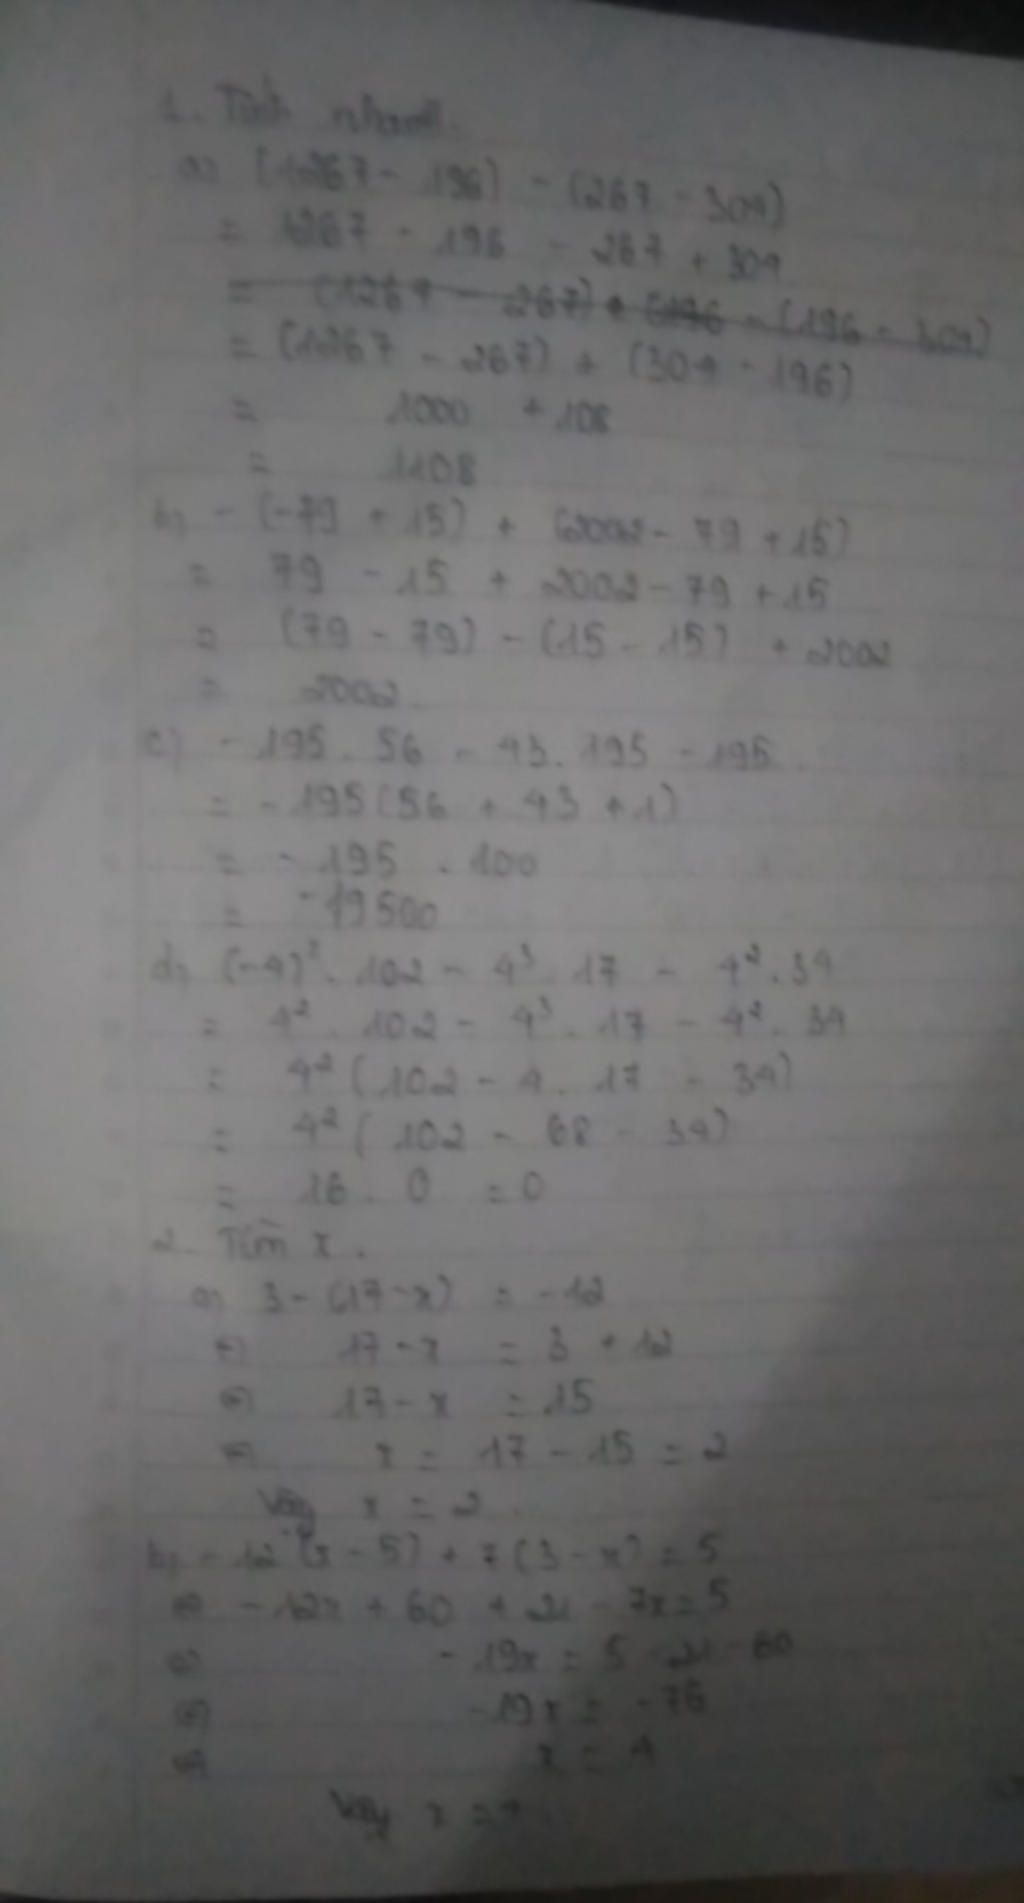 1. Tính nhanh.
a) (1267 - 196) - (267 - 304)
= 1267 - 196 - 267 + 304
= (1267 - 267) + (196 - (196 - 304)
= (1267 - 267) + (304 - 196)
= 1000 + 108
= 1108
b) - (-79 + 15) + (2002 - 79 + 15)
= 79 - 15 + 2002 - 79 + 15
= (79 - 79) - (15 - 15) + 2002
= 2002.
c) - 195 . 56 - 43 . 195 - 195.
= - 195 (56 + 43 + 1)
= - 195 . 100
= -19500
d) (-4)² . 102 - 4³ . 17 - 4² . 34
= 4² . 102 - 4³ . 17 - 4² . 34
= 4² (102 - 4 . 17 - 34)
= 4² ( 102 - 68 - 34)
= 16 . 0 = 0
2. Tìm x.
a) 3 - (17 - x) = -12
⇔ 17 - x = 3 + 12
⇔ 17 - x = 15
⇔ x = 17 - 15 = 2
Vậy x = 2.
b) - 12 (x - 5) + 7 (3 - x) = 5
⇔ - 12x + 60 + 21 - 7x = 5
⇔ - 19x = 5 - 21 - 60
⇔ - 19x = - 76
⇔ x = 4
Vậy x = 4.